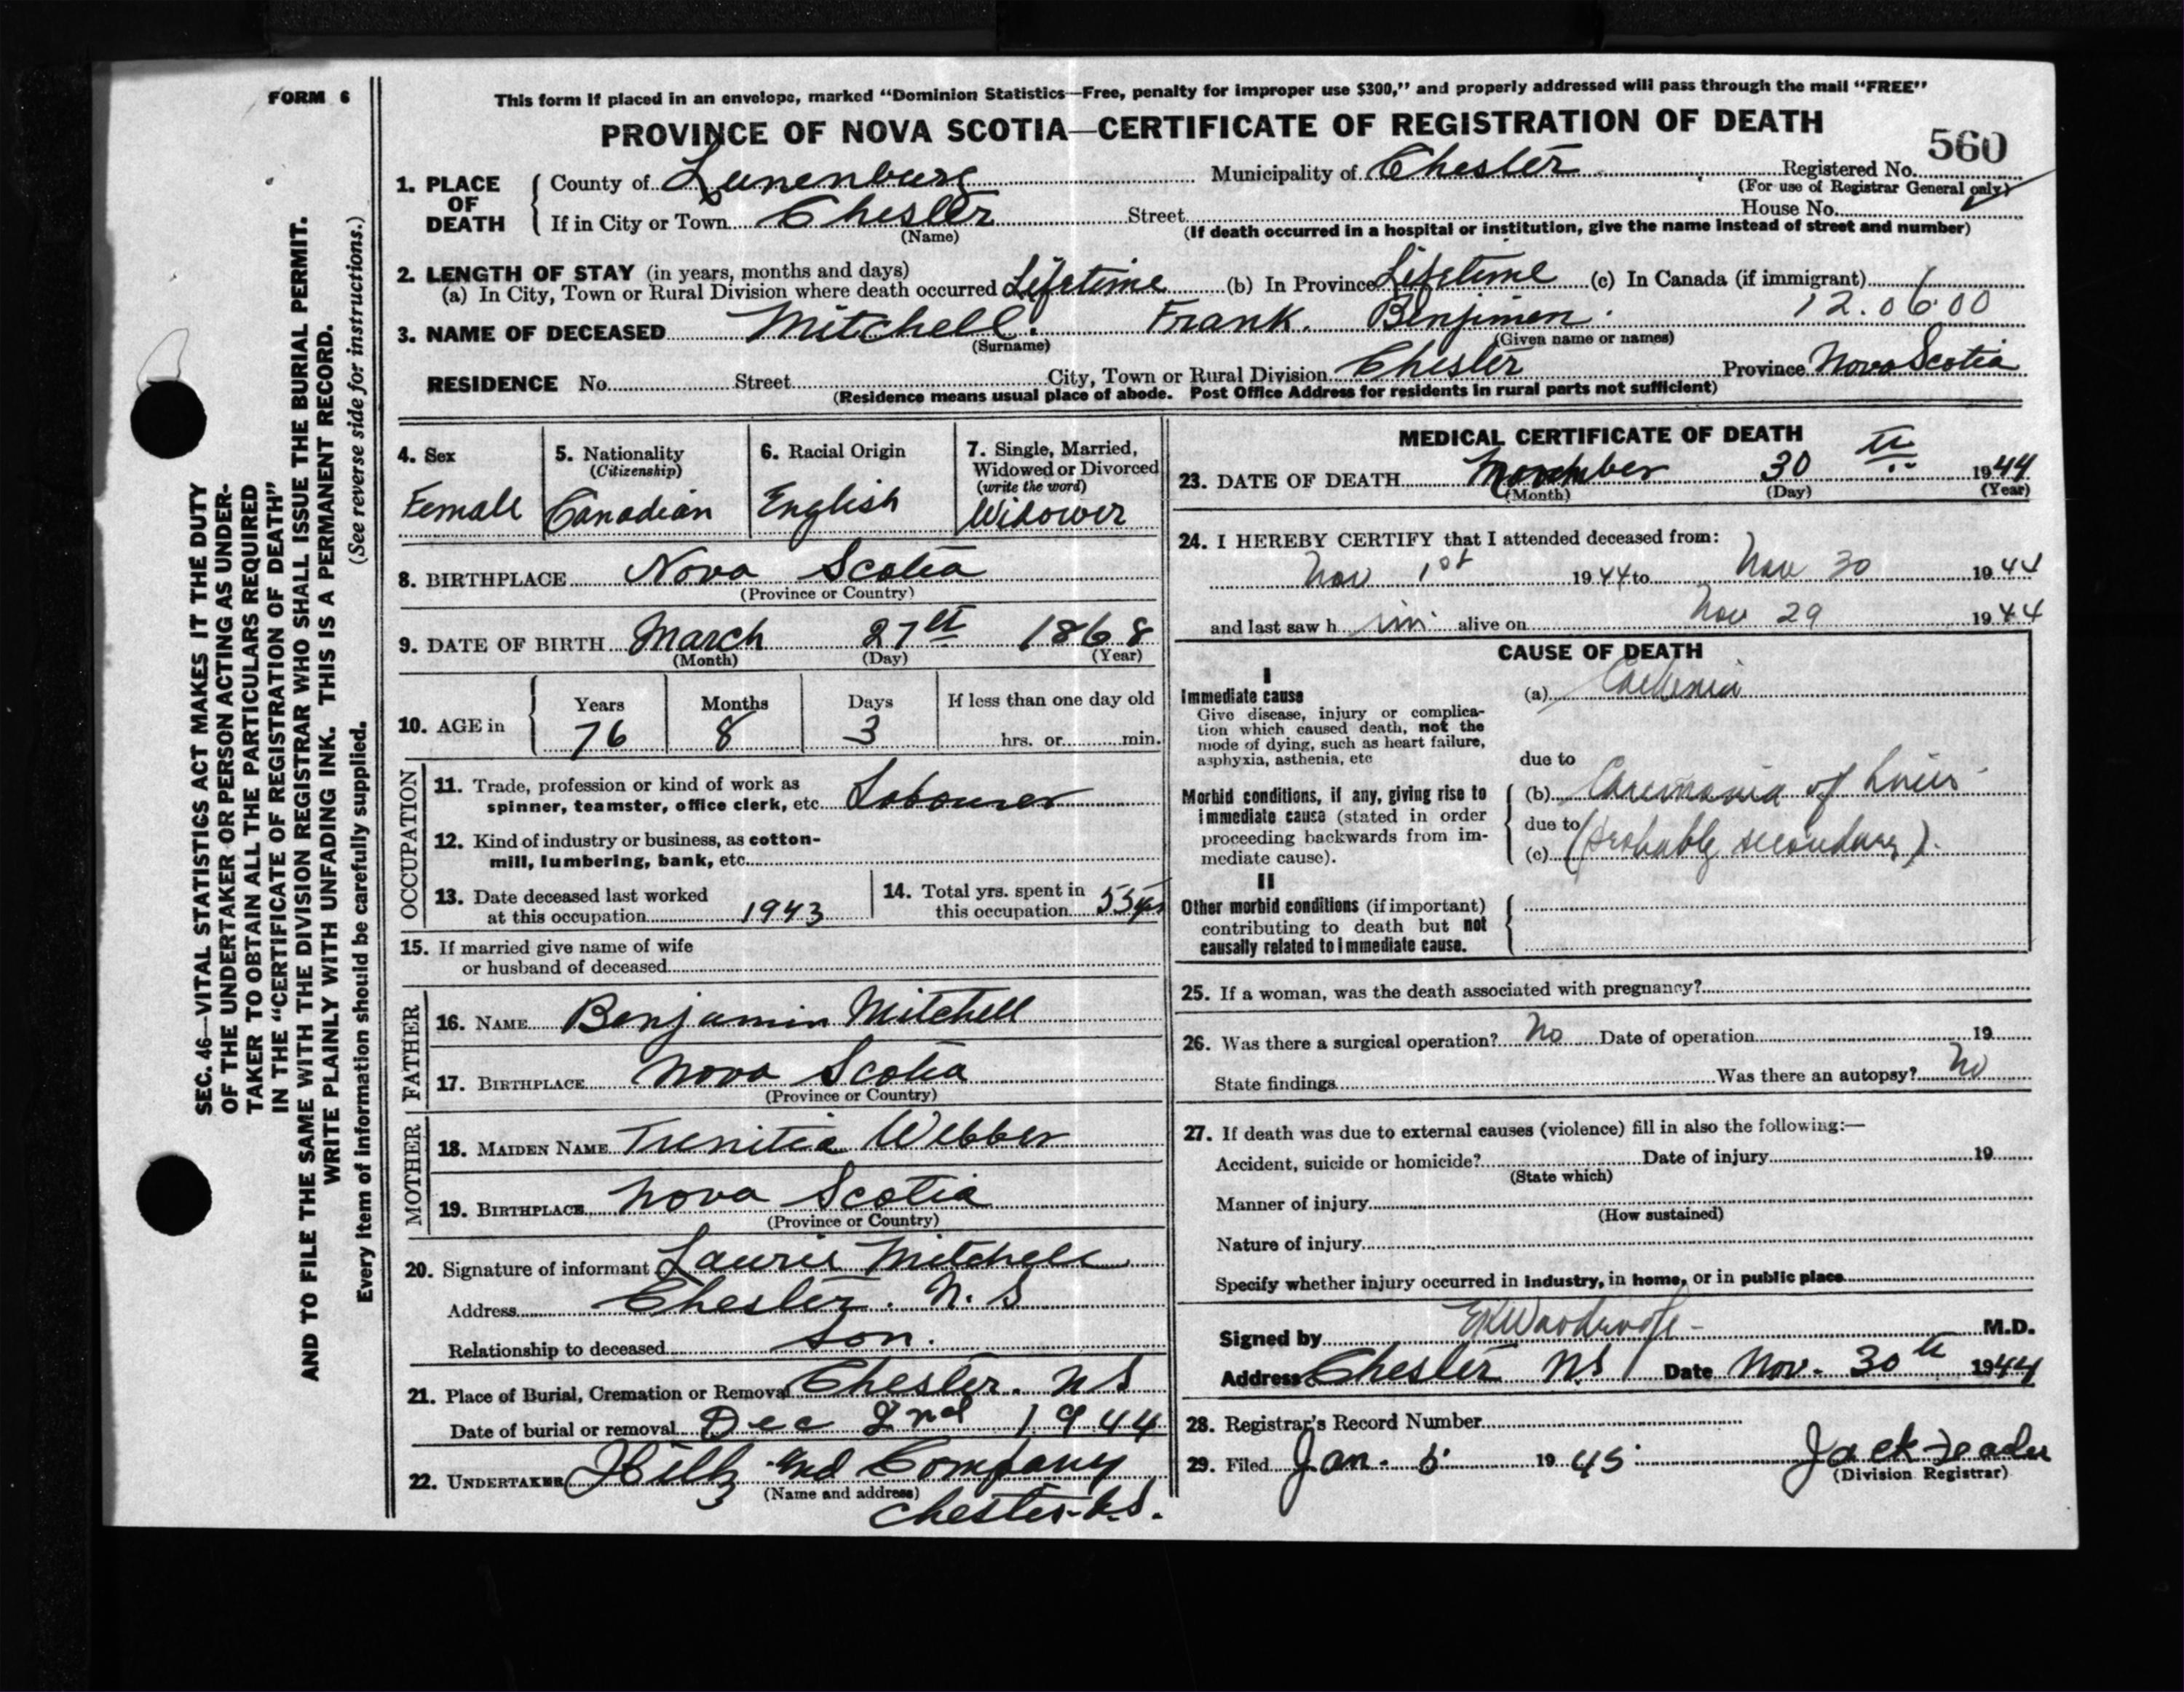 FORM 6
This form if placed in an envelope, marked "Dominion Statistics—Free, penalty for improper use $300," and properly addressed will pass through the mail "FREE"
PROVINCE OF NOVA SCOTIA—CERTIFICATE OF REGISTRATION OF DEATH
560
1. PLACE OF DEATH { County of Lunenburg Municipality of Chester Registered No.
(For use of Registrar General only)
If in City or Town Chester Street House No.
(Name) (If death occurred in a hospital or institution, give the name instead of street and number)
2. LENGTH OF STAY (in years, months and days)
(a) In City, Town or Rural Division where death occurred Lifetime (b) In Province Lifetime (c) In Canada (if immigrant)
12.06.00
3. NAME OF DECEASED Mitchell. Frank. Benjimen.
(Surname) (Given name or names)
RESIDENCE No. Street City, Town or Rural Division Chester Province Nova Scotia
(Residence means usual place of abode. Post Office Address for residents in rural parts not sufficient)
4. Sex Female
5. Nationality (Citizenship) Canadian
6. Racial Origin English
7. Single, Married, Widowed or Divorced (write the word) Widower
8. BIRTHPLACE Nova Scotia
(Province or Country)
9. DATE OF BIRTH March 27th 1868
(Month) (Day) (Year)
10. AGE in { Years Months Days If less than one day old
76 8 3 hrs. or min.
OCCUPATION
11. Trade, profession or kind of work as
spinner, teamster, office clerk, etc. Labourer
12. Kind of industry or business, as cotton-
mill, lumbering, bank, etc.
13. Date deceased last worked
at this occupation 1943
14. Total yrs. spent in
this occupation 55 yrs
15. If married give name of wife
or husband of deceased
FATHER
16. NAME Benjamin Mitchell
17. BIRTHPLACE Nova Scotia
(Province or Country)
MOTHER
18. MAIDEN NAME Trenitia Webber
19. BIRTHPLACE Nova Scotia
(Province or Country)
20. Signature of informant Lauris Mitchell
Address Chester. N.S
Relationship to deceased Son.
21. Place of Burial, Cremation or Removal Chester. NS
Date of burial or removal Dec 2nd 1944
22. UNDERTAKER and Company
(Name and address)
Chester N.S.
MEDICAL CERTIFICATE OF DEATH
23. DATE OF DEATH November 30 th 1944
(Month) (Day) (Year)
24. I HEREBY CERTIFY that I attended deceased from:
Nov 1st 1944 to Nov 30 1944
and last saw him alive on Nov 29 1944
CAUSE OF DEATH
I
Immediate cause
Give disease, injury or complica-
tion which caused death, not the
mode of dying, such as heart failure,
asphyxia, asthenia, etc
(a)
due to
Morbid conditions, if any, giving rise to
immediate cause (stated in order
proceeding backwards from im-
mediate cause).
(b) of
due to
(c) (probably secondary).
II
Other morbid conditions (if important)
contributing to death but not
causally related to immediate cause.
25. If a woman, was the death associated with pregnancy?
26. Was there a surgical operation? No Date of operation 19
State findings Was there an autopsy? No
27. If death was due to external causes (violence) fill in also the following:—
Accident, suicide or homicide? Date of injury 19
(State which)
Manner of injury
(How sustained)
Nature of injury
Specify whether injury occurred in industry, in home, or in public place
Signed by M.D.
Address Chester NS Date Nov. 30th 1944
28. Registrar's Record Number
29. Filed Jan. 1945 Jack
(Division Registrar)
SEC. 46—VITAL STATISTICS ACT MAKES IT THE DUTY
OF THE UNDERTAKER OR PERSON ACTING AS UNDER-
TAKER TO OBTAIN ALL THE PARTICULARS REQUIRED
IN THE "CERTIFICATE OF REGISTRATION OF DEATH"
AND TO FILE THE SAME WITH THE DIVISION REGISTRAR WHO SHALL ISSUE THE BURIAL PERMIT.
WRITE PLAINLY WITH UNFADING INK. THIS IS A PERMANENT RECORD.
Every item of information should be carefully supplied. (See reverse side for instructions.)